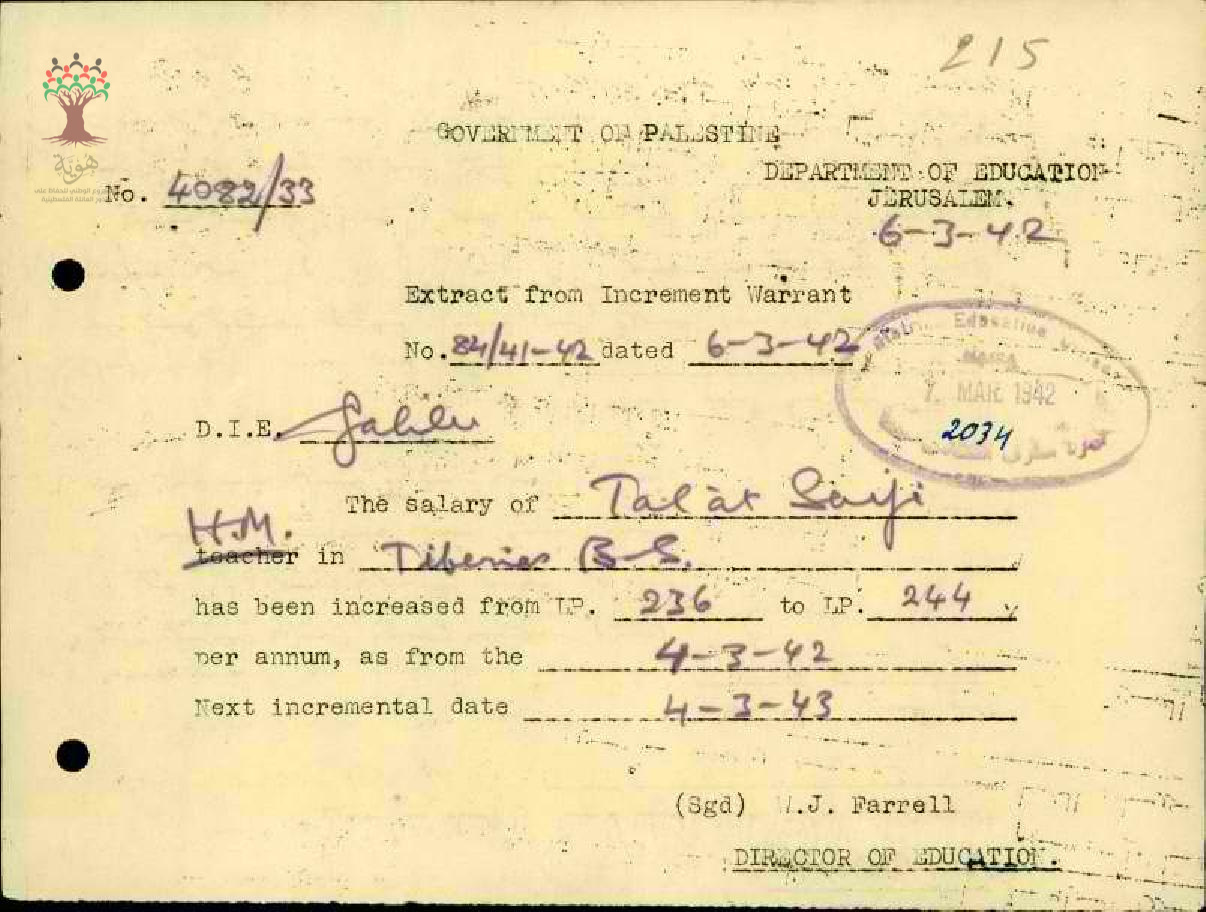 215
GOVERNMENT OF PALESTINE
هوية
No. 4082/33
DEPARTMENT OF EDUCATION
JERUSALEM.
6-3-42
Extract from Increment Warrant
No. 84/41-42 dated 6-3-42
Education
7. MAR 1942
2034
D.I.E. Galilee
The salary of Tal'at Saifi
H.M.
teacher in Tiberias B-S.
has been increased from LP. 236 to LP. 244
per annum, as from the 4-3-42
Next incremental date 4-3-43
(Sgd) W.J. Farrell
DIRECTOR OF EDUCATION.